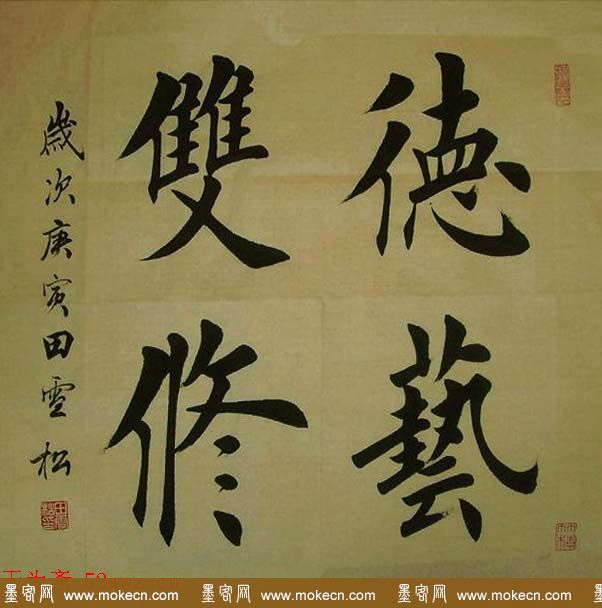 德藝
雙修
歲次庚寅田雪松
墨客网 www.mokecn.com 墨客网 www.mokecn.com 墨客网 www.mokecn.com